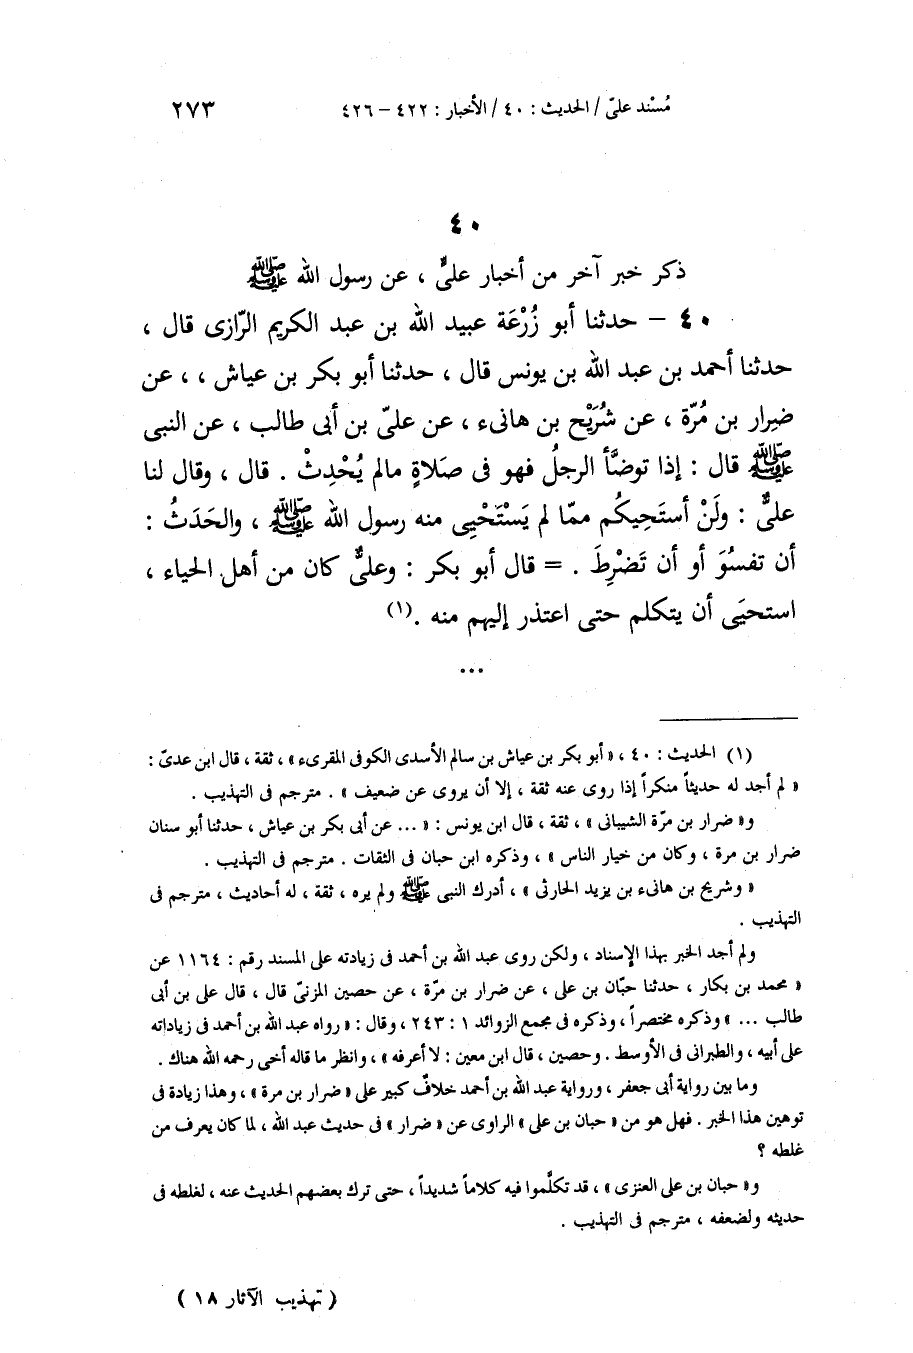 مُسْند علىّ / الحديث : ٤٠ / الأخبار : ٤٢٢ – ٤٢٦ ٢٧٣
٤٠
ذكر خبر آخر من أخبار علىٍّ ، عن رسول الله ﷺ
٤٠ – حدثنا أبو زُرْعَة عبيد الله بن عبد الكريم الرّازى قال ،
حدثنا أحمد بن عبد الله بن يونس قال ، حدثنا أبو بكر بن عياش ، ، عن
ضِرار بن مُرّة ، عن شُرَيْح بن هانىء ، عن علىّ بن أبى طالب ، عن النبى
ﷺ قال : إذا توضَّأ الرجلُ فهو فى صَلاةٍ مالم يُحْدِثْ . قال ، وقال لنا
علىٌّ : ولَنْ أستَحِيكُم ممّا لم يَسْتَحْيِى منه رسول الله ﷺ ، والحَدَثُ :
أن تفسُوَ أو أن تَضْرِطَ . = قال أبو بكر : وعلىٌّ كان من أهل الحياء ،
استحيَى أن يتكلم حتى اعتذر إليهم منه .(١)
...
(١) الحديث : ٤٠ ، « أبو بكر بن عياش بن سالم الأسدى الكوفى المقرىء » ، ثقة ، قال ابن عدىّ :
« لم أجد له حديثاً منكراً إذا روى عنه ثقة ، إلا أن يروى عن ضعيف » . مترجم فى التهذيب .
و« ضرار بن مرّة الشيبانى » ، ثقة ، قال ابن يونس : « ... عن أبى بكر بن عياش ، حدثنا أبو سنان
ضرار بن مرة ، وكان من خيار الناس » ، وذكره ابن حبان فى الثقات . مترجم فى التهذيب .
« وشريح بن هانىء بن يزيد الحارثى » ، أدرك النبى ﷺ ولم يره ، ثقة ، له أحاديث ، مترجم فى
التهذيب .
ولم أجد الخبر بهذا الإسناد ، ولكن روى عبد الله بن أحمد فى زيادته على المسند رقم : ١١٦٤ عن
« محمد بن بكار ، حدثنا حبّان بن على ، عن ضرار بن مرّة ، عن حصين المزنىّ قال ، قال على بن أبى
طالب ... » وذكره مختصراً ، وذكره فى مجمع الزوائد ١ : ٢٤٣ ، وقال : « رواه عبد الله بن أحمد فى زياداته
على أبيه ، والطبرانى فى الأوسط . وحصين ، قال ابن معين : لا أعرفه » ، وانظر ما قاله أخى رحمه الله هناك .
وما بين رواية أبى جعفر ، ورواية عبد الله بن أحمد خلافٌ كبير على « ضرار بن مرة » ، وهذا زيادة فى
توهين هذا الخبر . فهل هو من « حبان بن على » الراوى عن « ضرار » فى حديث عبد الله ، لما كان يعرف من
غلطه ؟
و« حبان بن على العنزى » ، قد تكلَّموا فيه كلاماً شديداً ، حتى ترك بعضهم الحديث عنه ، لغلطه فى
حديثه ولضعفه ، مترجم فى التهذيب .
( تهذيب الآثار ١٨ )